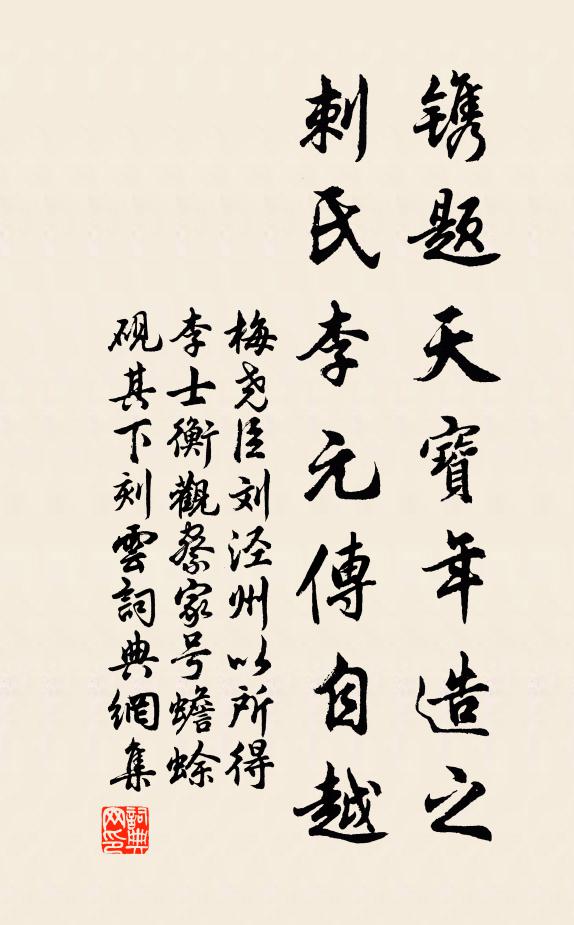 镌题天寳年造之
刺氏李元傳自越
梅尧臣刘泾州以所得
李士衡觀察家号蟾蜍
砚其下刻雲詞典網集
詞典
网印